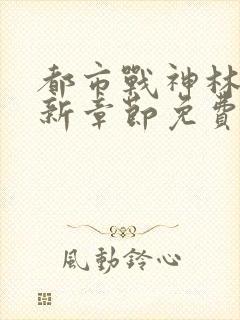 都市戰神林
新章節免費
風動鈴心